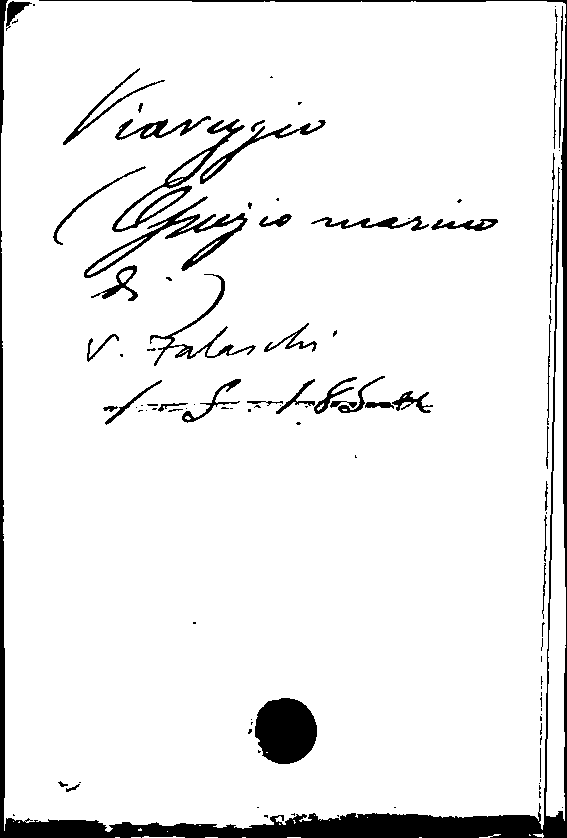 Viareggio
(Ospizio marino
di )
V. Falaschi